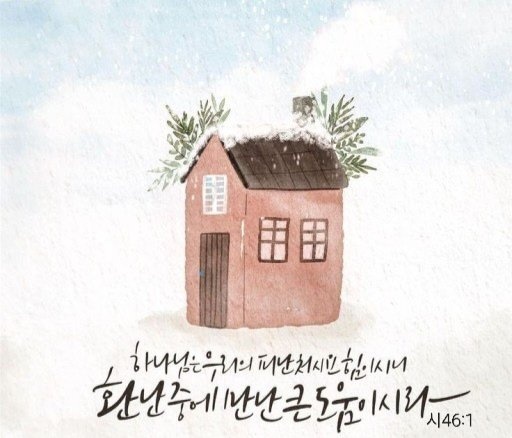 하나님은 우리의 피난처시요 힘이시니
환난 중에 만난 큰 도움이시라
시46:1